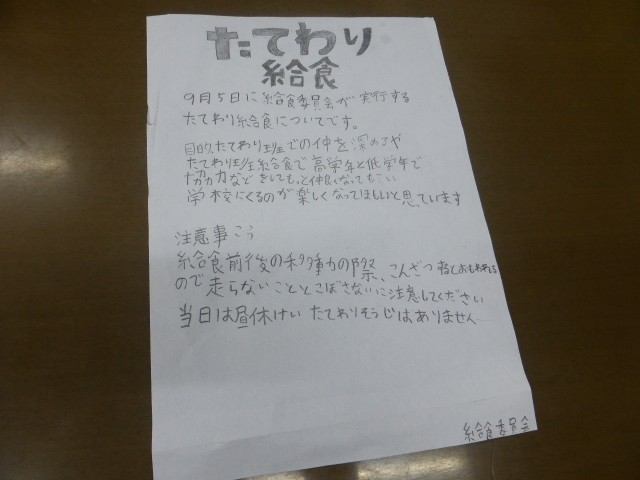 たてわり
給食
9月5日に給食委員会が実行する
たてわり給食についてです。
目的、たてわり班での仲を深めるや
たてわり班給食で高学年と低学年で
協力などをしてもっと仲良くなってもらい
学校にくるのが楽しくなってほしいと思っています
注意事こう
給食前後の移動の際、こんざつ
ので走らないこととこぼさないに注意してください
当日は昼休けい たてわりそうじはありません
給食委員会